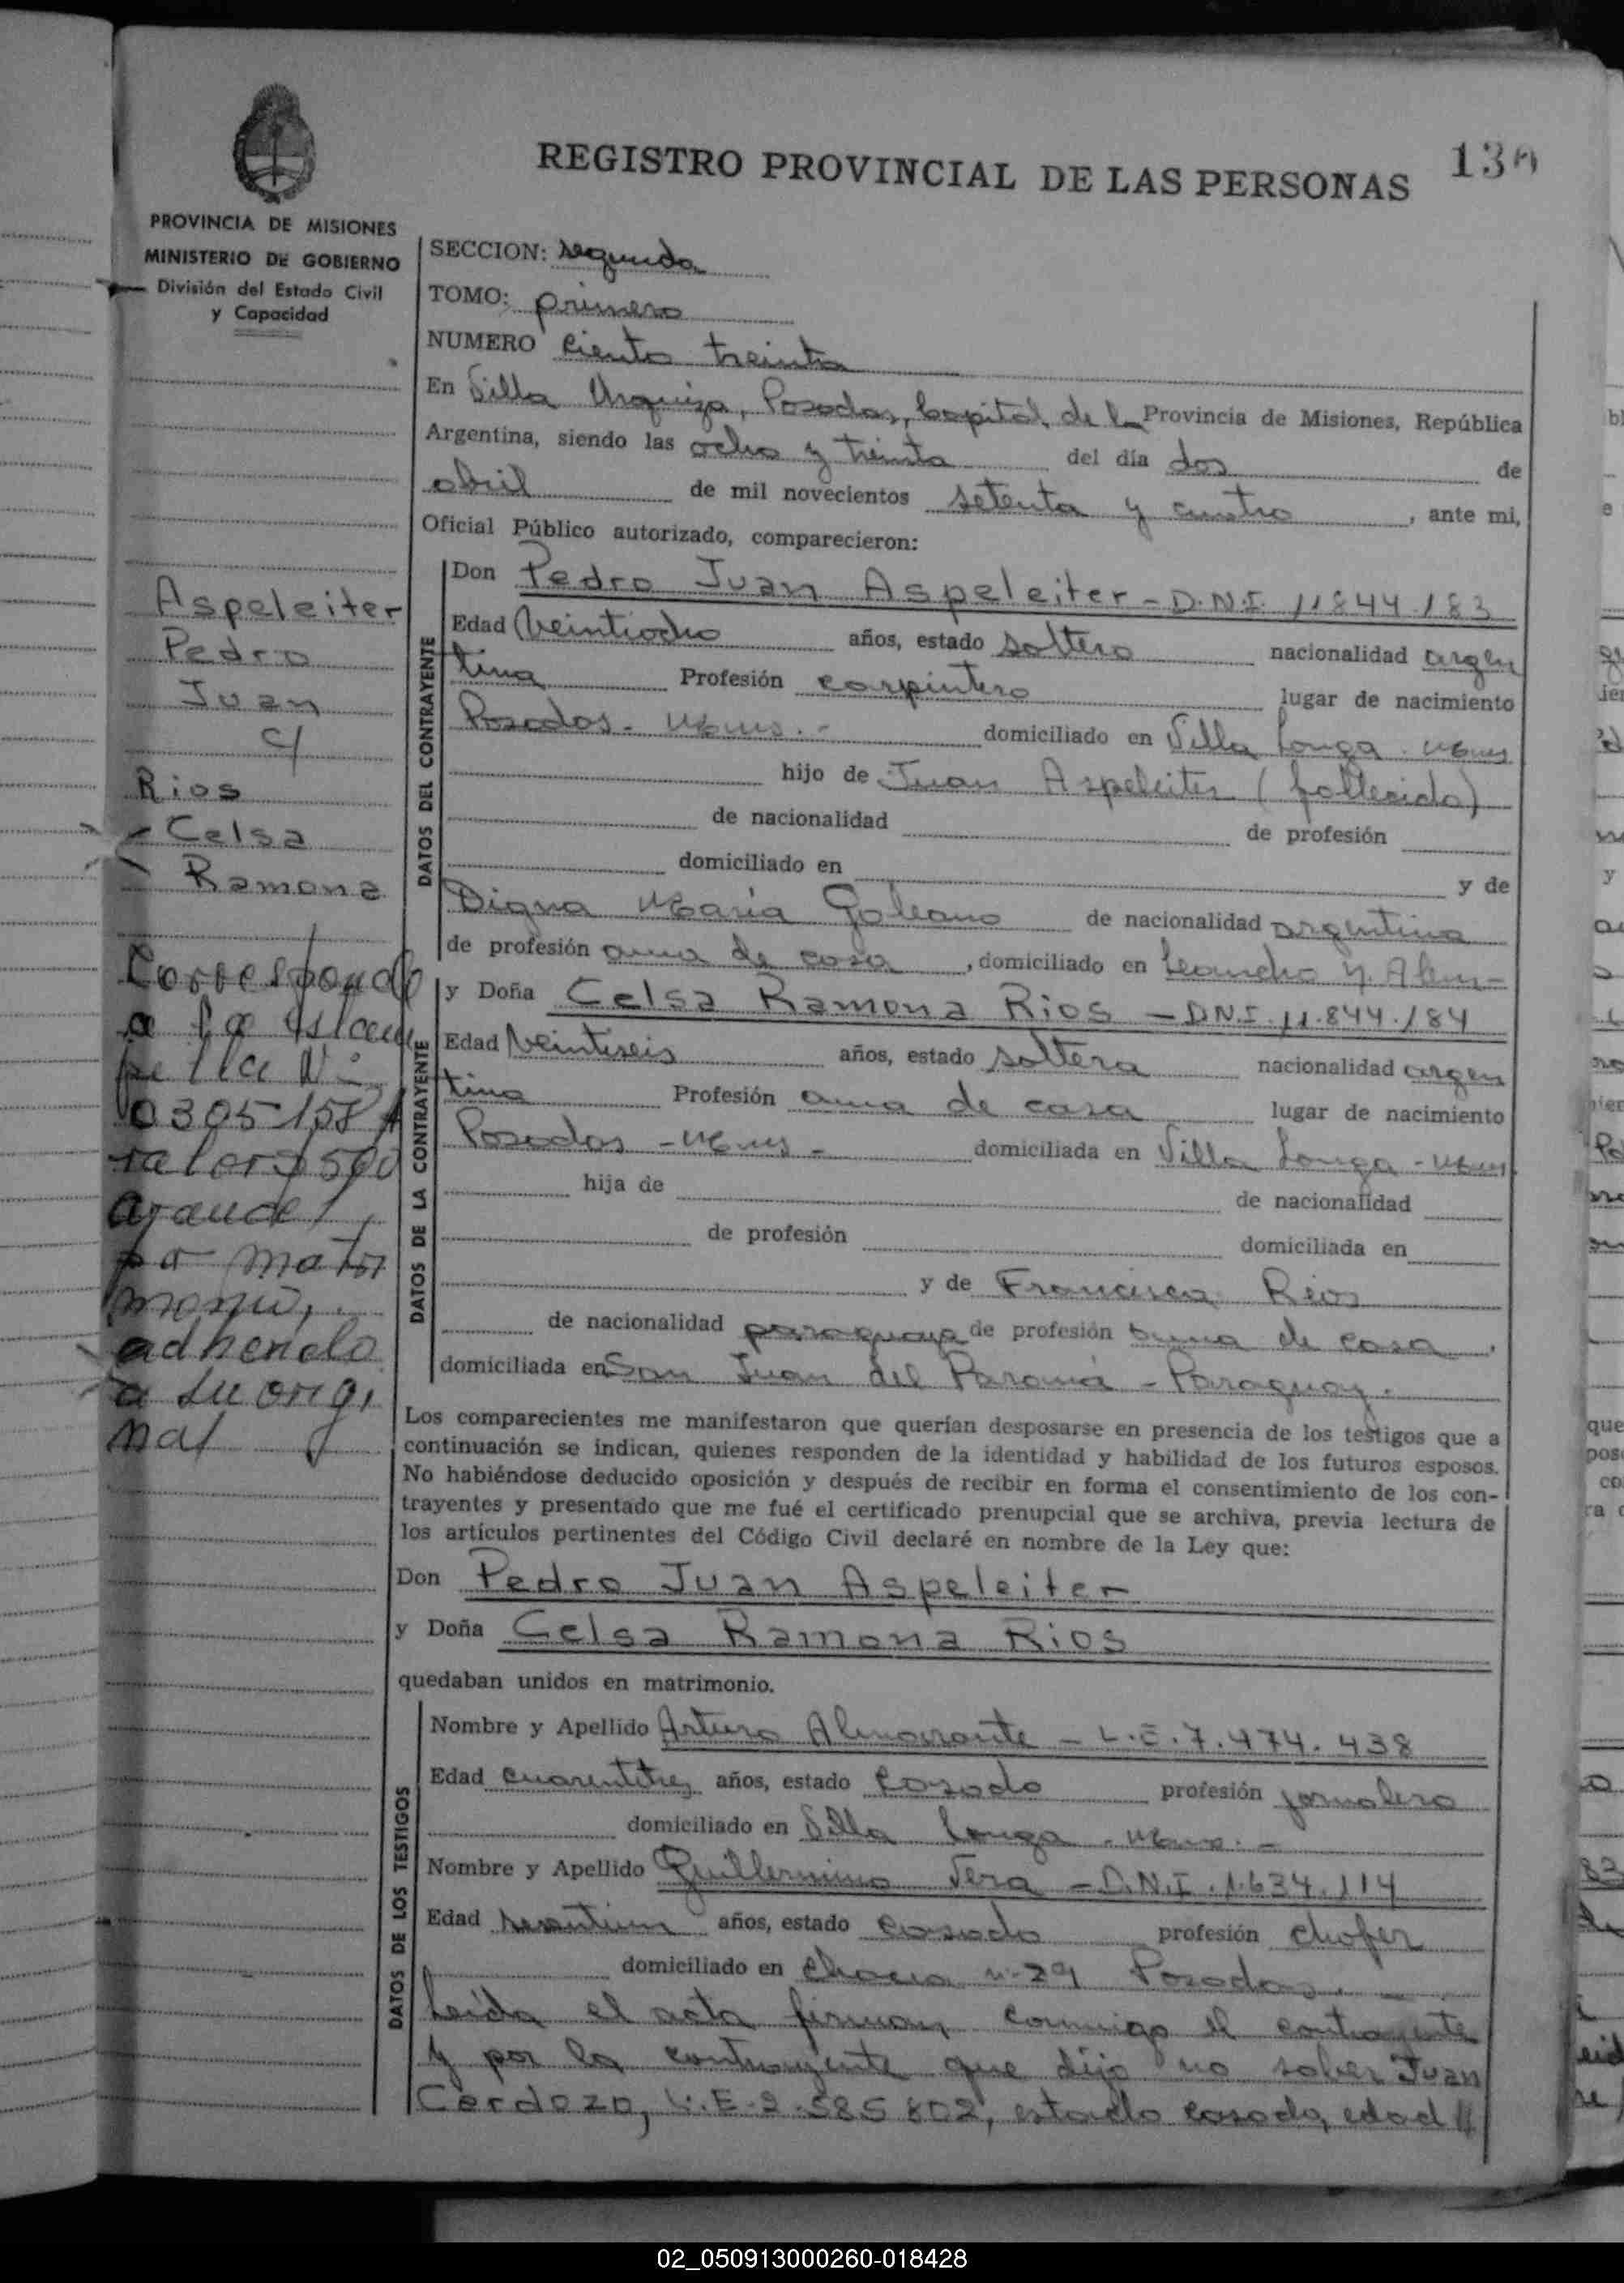 REGISTRO PROVINCIAL DE LAS PERSONAS
130
PROVINCIA DE MISIONES
MINISTERIO DE GOBIERNO
División del Estado Civil
y Capacidad
SECCION: segunda
TOMO: primero
NUMERO ciento treinta
En Villa Urquiza, Posadas, Capital de la Provincia de Misiones, República
Argentina, siendo las ocho y treinta del día dos de
abril de mil novecientos setenta y cuatro, ante mi,
Oficial Público autorizado, comparecieron:
Aspeleiter
Pedro
Juan
c/
Rios
Celsa
Ramona
Corresponde
a la estam
pilla Nº
0305158 A
valor $ 500
grande
por matri
monio,
adherido
a su origi
nal
DATOS DEL CONTRAYENTE
Don Pedro Juan Aspeleiter - D.N.I. 11844183
Edad veintiocho años, estado soltero nacionalidad argen
tina Profesión carpintero lugar de nacimiento
Posadas - Mnes. - domiciliado en Villa Longa - Mnes
hijo de Juan Aspeleiter (fallecido)
de nacionalidad de profesión
domiciliado en y de
Digna María Galeano de nacionalidad argentina
de profesión ama de casa, domiciliado en Leandro N. Alem-
DATOS DE LA CONTRAYENTE
y Doña Celsa Ramona Rios - DNI. 11.844.184
Edad veintiseis años, estado soltera nacionalidad argen
tina Profesión ama de casa lugar de nacimiento
Posadas - Mnes - domiciliada en Villa Longa - Mnes
hija de de nacionalidad
de profesión domiciliada en
y de Francisca Rios
de nacionalidad paraguaya de profesión ama de casa,
domiciliada en San Juan del Paraná - Paraguay.
Los comparecientes me manifestaron que querían desposarse en presencia de los testigos que a
continuación se indican, quienes responden de la identidad y habilidad de los futuros esposos.
No habiéndose deducido oposición y después de recibir en forma el consentimiento de los con-
trayentes y presentado que me fué el certificado prenupcial que se archiva, previa lectura de
los artículos pertinentes del Código Civil declaré en nombre de la Ley que:
Don Pedro Juan Aspeleiter
y Doña Celsa Ramona Rios
quedaban unidos en matrimonio.
DATOS DE LOS TESTIGOS
Nombre y Apellido Arturo Almirante - L.E. 7.474.438
Edad cuarentitres años, estado casado profesión jornalero
domiciliado en Villa Longa - Mnes. -
Nombre y Apellido Guillermino Vera - D.N.I. 1.634.114
Edad años, estado casado profesión chofer
domiciliado en chacra nº 29 Posadas. -
Leída el acta firman conmigo el contrayente
y por la contrayente que dijo no saber Juan
Cardozo, L.E. 2.585.802, estado casado, edad
02_050913000260-018428